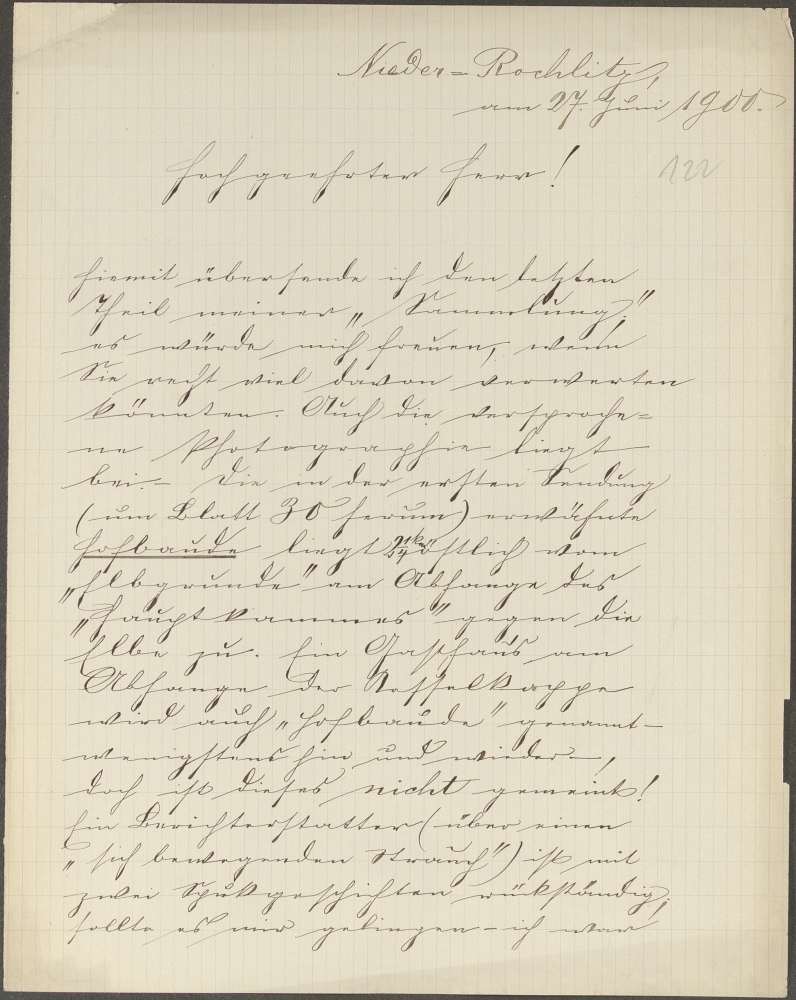 Nieder=Rochlitz,
am 27. Juni 1900.
122
Hochgeehrter Herr!
Hiemit übersende ich den letzten
Theil meiner „Sammlung";
es würde mich freuen, wenn
Sie recht viel davon verwerten
könnten. Auch die versproche=
ne Photographie liegt
bei. – Die in der ersten Sendung
(um Blatt 30 herum) erwähnte
Hofbaude liegt östlich vom
„Elbgrunde" am Abhange des
„Hauptkammes" gegen die
Elbe zu. Ein Gasthaus am
Abhange der Kesselkoppe
wird auch „Hofbaude" genannt –
wenigstens hin und wieder –,
doch ist dieses nicht gemeint!
Ein Berichterstatter (über einen
„sich bewegenden Strauch") ist mit
zwei Spukgeschichten rückständig;
sollte es mir gelingen – ich war